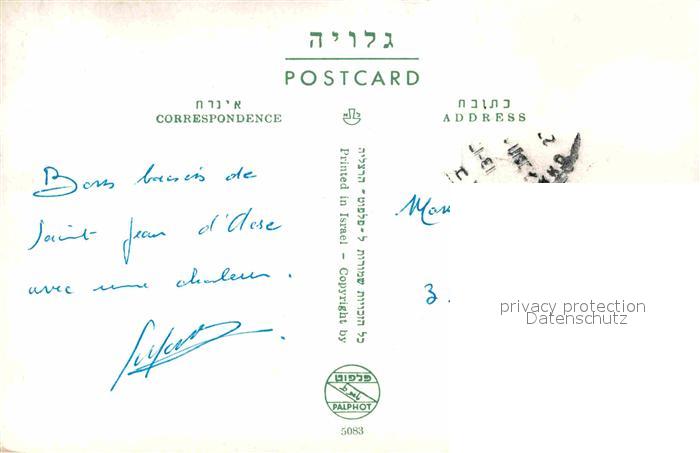 גלויה
POSTCARD
איגרת
CORRESPONDENCE
כתובת
ADDRESS
Bons baisers de
Saint Jean d'Acre
avec une chaleur.
כל הזכויות שמורות ל-פלפוט - הרצליה
Printed in Israel – Copyright by
Mon
3.
privacy protection
Datenschutz
פלפוט
PALPHOT
5083